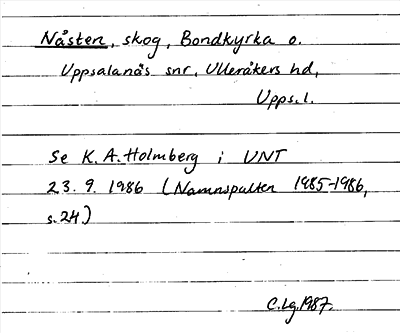 Nåsten, skog, Bondkyrka o.
Uppsalanäs snr, Ulleråkers hd,
Upps.l.
Se K.A. Holmberg i UNT
23.9.1986 (Namnspalten 1985-1986,
s.24)
C.Lg.1987.